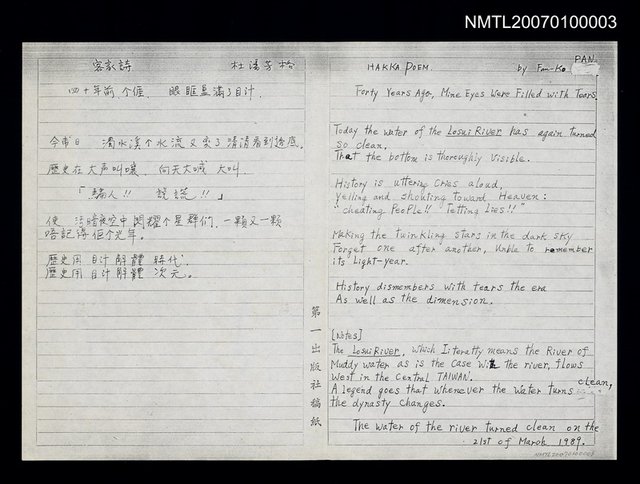 NMTL20070100003
客家詩 杜潘芳格
四十年前个𠊎 眼眶盈滿了目汁
今有日 濁水溪个水流又変了清清看到透底
歷史在大声叫喚 向天大喊 大叫
「騙人!! 説謊!!」
使 淡暗夜空中閃耀个星群們,一顆又一顆
唔記得佢个光年。
歷史用目汁解體 時代
歷史用目汁解體 次元。
第一出版社稿紙
HAKKA POEM. by Fan-Ko PAN
Forty Years Ago, Mine Eyes Were Filled with Tears
Today the water of the Losui River has again turned
so clean.
That the bottom is thoroughly visible.
History is uttering cries aloud,
yelling and shouting toward Heaven:
"cheating People!! Telling Lies!!"
Making the twinkling stars in the dark sky
Forget one after another, Unble to remember
its Light-year.
History dismembers with tears the era
As well as the dimension.
[Notes]
The Losui River, which Literatty means the River of
Muddy water as is the case with the river, flows
West in the Central TAIWAN.
A legend goes that whenever the water turns clean,
the dynasty changes.
The water of the river turned clean on the
21st of March 1989.
NMTL20070100003